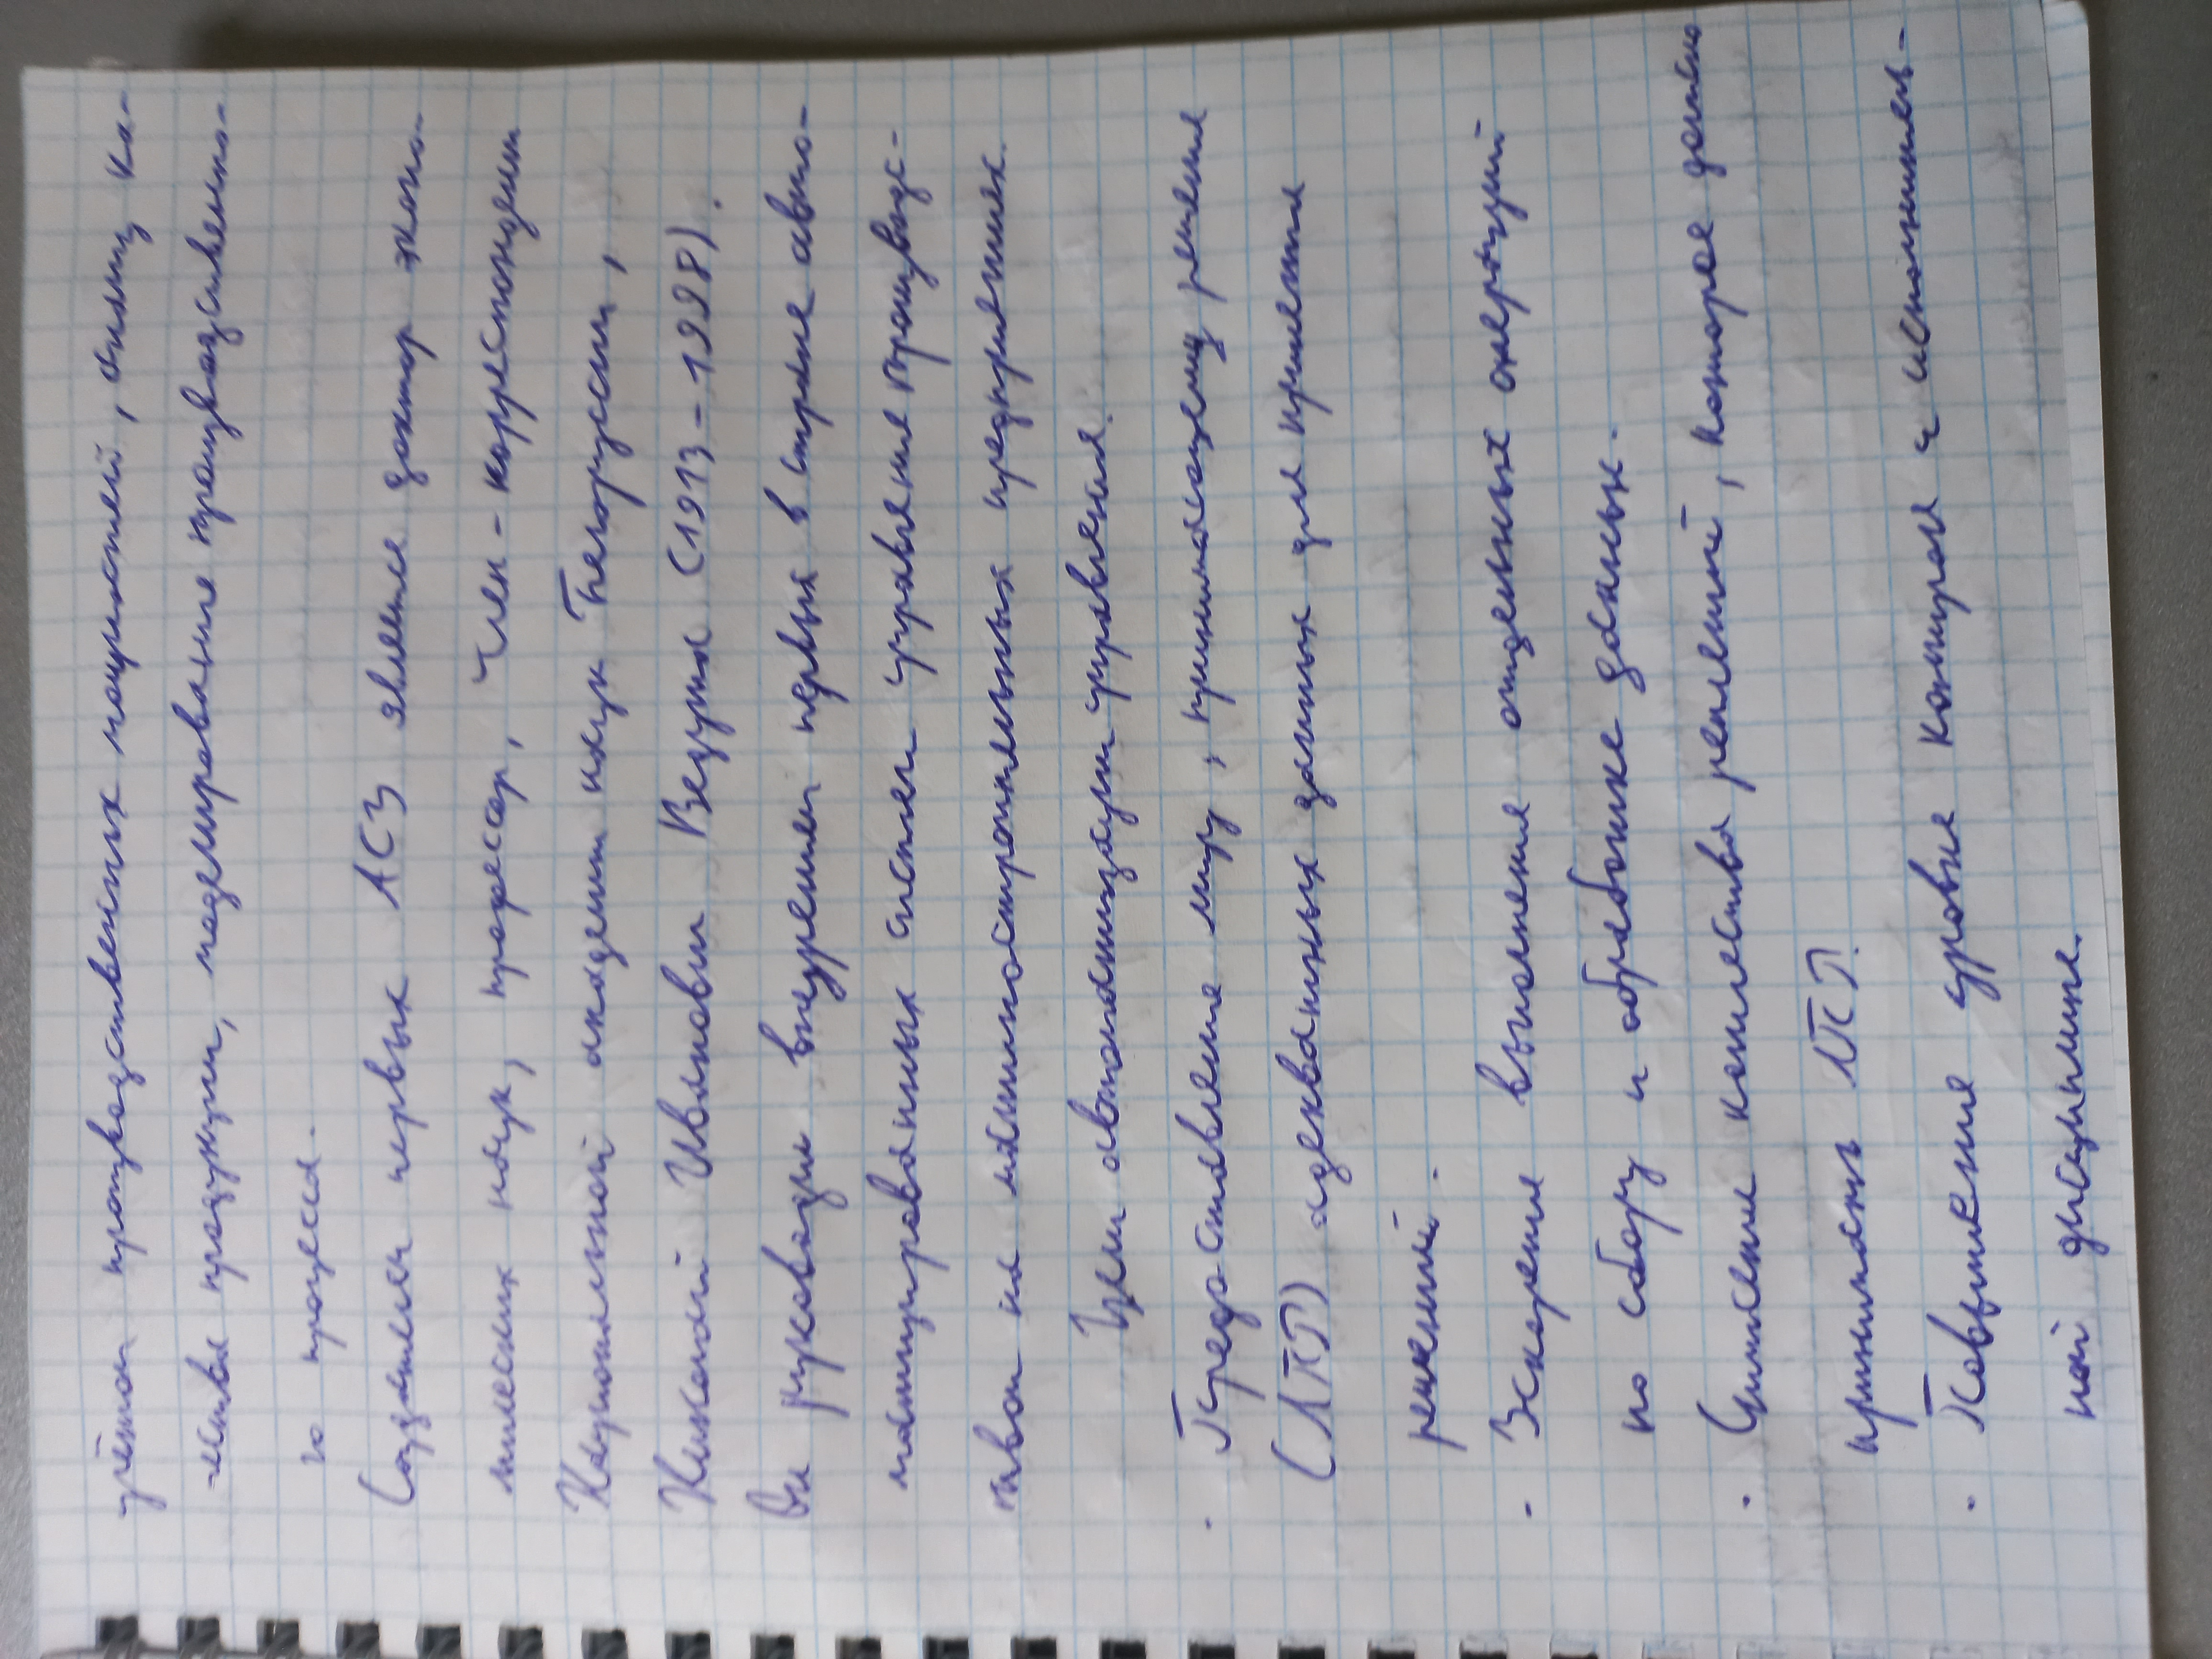 учётом производственных мощностей, анализ ка-
-чества продукции, моделирование производственно-
го процесса.
Создателем первых АСУ является доктор эконо-
мических наук, профессор, член-корреспондент
Национальной академии наук Белоруссии,
Николай Иванович Ведута (1913-1998).
Он руководил внедрением первых в стране авто-
матизированных систем управление производс-
твом на машиностроительных предприятиях.
Цели автоматизации управления.
· Предоставление лицу, принимающему решения
(ЛПР) адекватных данных для принятия
решений.
· Ускорение выполнения отдельных операций
по сбору и обработке данных.
· Снижение количества решений, которое должно
принимать ЛПР.
· Повышение уровня контроля и исполнитель-
ной дисциплине.